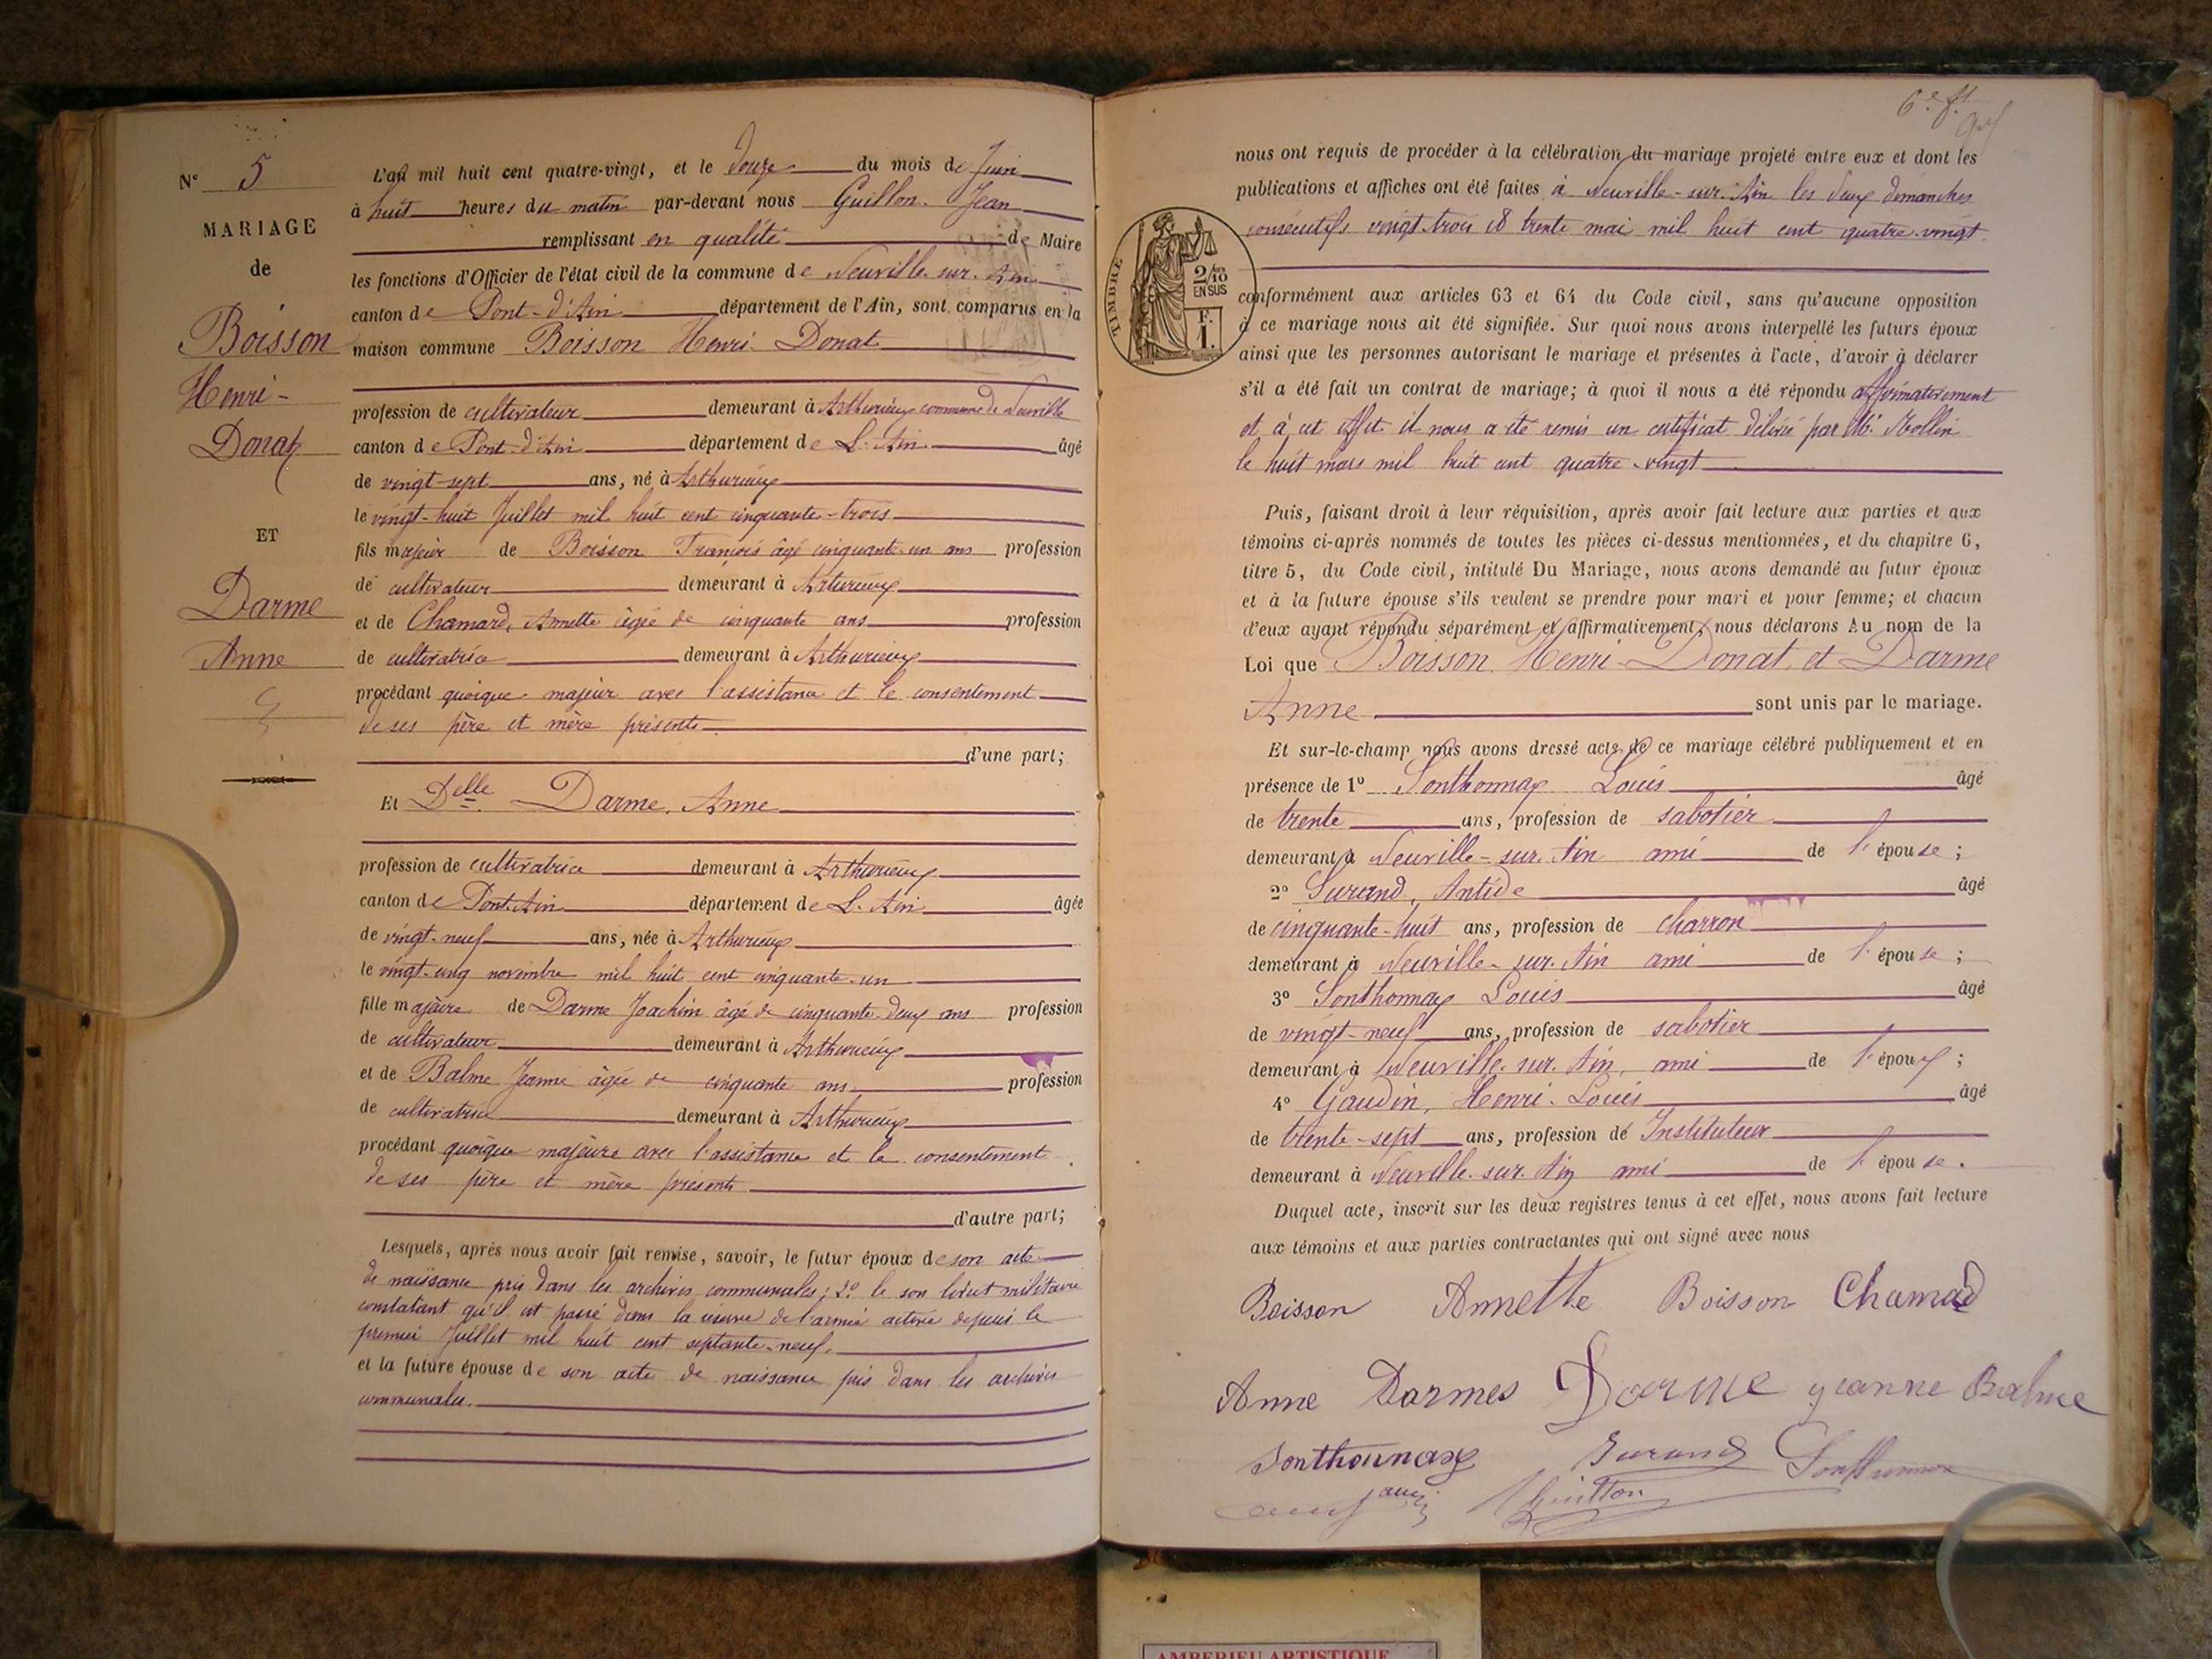 N° 5
MARIAGE
de
Boisson
Henri-
Donat
ET
Darme
Anne
L'an mil huit cent quatre-vingt, et le douze du mois de Juin
à huit heures du matin par-devant nous Guillon Jean
remplissant en qualité de Maire
les fonctions d'Officier de l'état civil de la commune de Neuville-sur-Ain
canton de Pont-d'Ain département de l'Ain, sont comparus en la
maison commune Boisson Henri-Donat
profession de cultivateur demeurant à Arthurieux commune de Neuville
canton de Pont-d'Ain département de L'Ain âgé
de vingt-sept ans, né à Arthurieux
le vingt-huit Juillet mil huit cent cinquante-trois
fils majeur de Boisson François âgé cinquante-un ans profession
de cultivateur demeurant à Arturieux
et de Chamard, Annette âgée de cinquante ans profession
de cultivatrice demeurant à Arthurieux
procédant quoique majeur avec l'assistance et le consentement
de ses père et mère présents
d'une part;
Et Delle Darme, Anne
profession de cultivatrice demeurant à Arthurieux
canton de Pont-Ain département de L'Ain âgée
de vingt-neuf ans, née à Arthurieux
le vingt-ung novembre mil huit cent cinquante-un
fille majeure de Darme Joachim âgé de cinquante-deux ans profession
de cultivateur demeurant à Arthurieux
et de Balme Jeanne âgée de cinquante ans profession
de cultivatrice demeurant à Arthurieux
procédant quoique majeure avec l'assistance et le consentement
de ses père et mère présents
d'autre part;
Lesquels, après nous avoir fait remise, savoir, le futur époux de son acte
de naissance pris dans les archives communales; 2° le son livret militaire
constatant qu'il est passé dans la réserve de l'armée active depuis le
premier Juillet mil huit cent septante-neuf.
et la future épouse de son acte de naissance pris dans les archives
communales.
6e ft
nous ont requis de procéder à la célébration du mariage projeté entre eux et dont les
publications et affiches ont été faites à Neuville-sur-Ain les deux dimanches
consécutifs vingt-trois et trente mai mil huit cent quatre-vingt
TIMBRE
2/10
EN SUS
F.
1.
conformément aux articles 63 et 64 du Code civil, sans qu'aucune opposition
à ce mariage nous ait été signifiée. Sur quoi nous avons interpellé les futurs époux
ainsi que les personnes autorisant le mariage et présentes à l'acte, d'avoir à déclarer
s'il a été fait un contrat de mariage; à quoi il nous a été répondu affirmativement
et à cet effet il nous a été remis un certificat délivré par Me Mollin
le huit mars mil huit cent quatre-vingt
Puis, faisant droit à leur réquisition, après avoir fait lecture aux parties et aux
témoins ci-après nommés de toutes les pièces ci-dessus mentionnées, et du chapitre 6,
titre 5, du Code civil, intitulé Du Mariage, nous avons demandé au futur époux
et à la future épouse s'ils veulent se prendre pour mari et pour femme; et chacun
d'eux ayant répondu séparément et affirmativement, nous déclarons Au nom de la
Loi que Boisson Henri-Donat et Darme
Anne sont unis par le mariage.
Et sur-le-champ nous avons dressé acte de ce mariage célébré publiquement et en
présence de 1° Sonthonnax Louis âgé
de trente ans, profession de sabotier
demeurant à Neuville-sur-Ain ami de l'épouse;
2° Surand, Antide âgé
de cinquante-huit ans, profession de charron
demeurant à Neuville-sur-Ain ami de l'épouse;
3° Sonthonnax Louis âgé
de vingt-neuf ans, profession de sabotier
demeurant à Neuville-sur-Ain, ami de l'époux;
4° Gaudin, Henri-Louis âgé
de trente-sept ans, profession de Instituteur
demeurant à Neuville-sur-Ain ami de l'épouse.
Duquel acte, inscrit sur les deux registres tenus à cet effet, nous avons fait lecture
aux témoins et aux parties contractantes qui ont signé avec nous
Boisson Annette Boisson Chamad
Anne Darmes Darme jeanne Balme
Sonthonnax Surand Sonthonnax
Guillon
AMBERIEU ARTISTIQUE